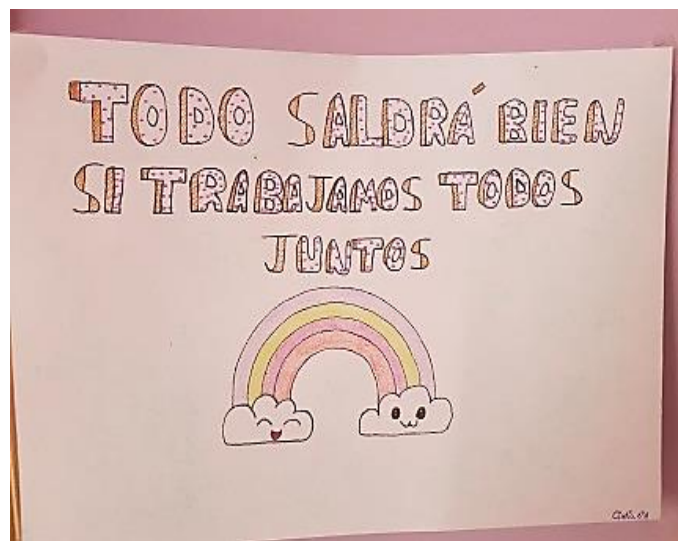 TODO SALDRÁ BIEN
SI TRABAJAMOS TODOS
JUNTOS